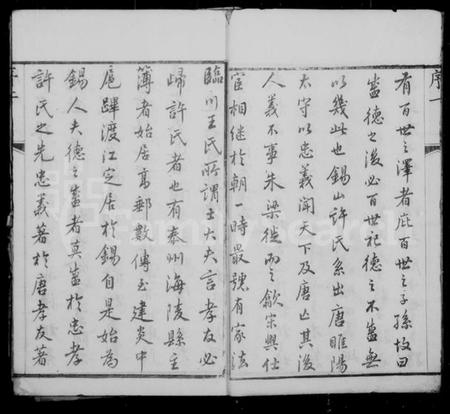 序一
有百世之澤者庇百世之子孫故曰
盛德之後必百世祀德之不盛無
以幾此也錫山許氏系出唐睢陽
太守以忠義聞天下及唐亡其後
人義不事朱梁徙而之歙宋興仕
宦相继於朝一時最號有家法
臨川王氏所謂士大夫言孝友必
歸許氏者也有泰州海陵縣主
簿者始居高郵數傳至建炎中
扈蹕渡江定居於錫自是始為
錫人夫德之盛者莫盛於忠孝
許氏之先忠義著於唐孝友著